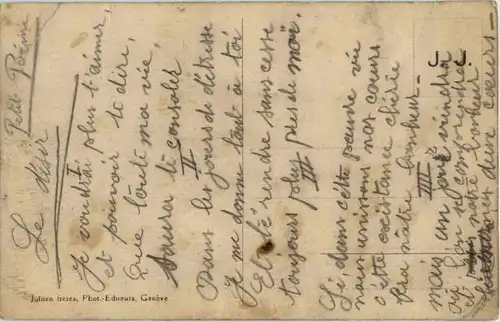 Petit Poème
Le désir
I
Je voudrai plus t'aimer
et pouvoir te dire,
Que toute ma vie,
Saura te consoler
II
Dans les jours de détresse
Je me donne tout à toi
Et te rendre sans cesse
toujours plus près de moi.
III
Si dans cette pauvre vie
nous unissons nos cœurs
c'este existance chérie
Fra nâtre bonheur.
IIII
mais un jour viendra
où l'on se comprendra
et notre bonheur
deux cœurs.
Jullien frères, Phot.-Editeurs, Genève